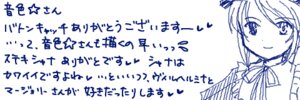 音色☆さん
バトンキャッチありがとうございますー♥♥
…って、音色☆さんも描くの早いっっ
ステキシャナありがとです♥ シャナは
カワイイですよね♥ …といいつつ、ヴィルヘルミナと
マージョリーさんが好きだったりします♥